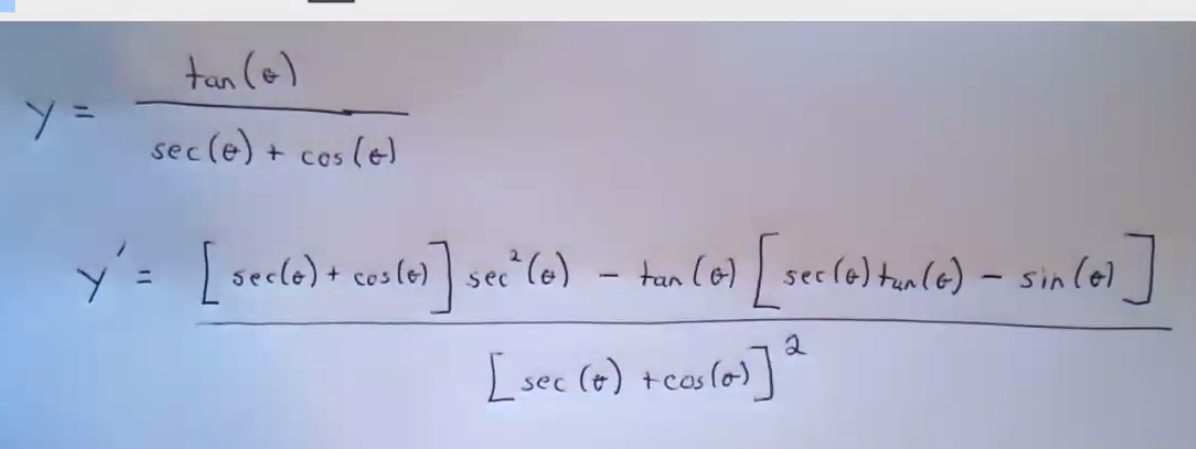 y = tan(θ) / sec(θ) + cos(θ)
y' = [sec(θ) + cos(θ)] sec²(θ) − tan(θ) [sec(θ) tan(θ) − sin(θ)] / [sec(θ) + cos(θ)]²